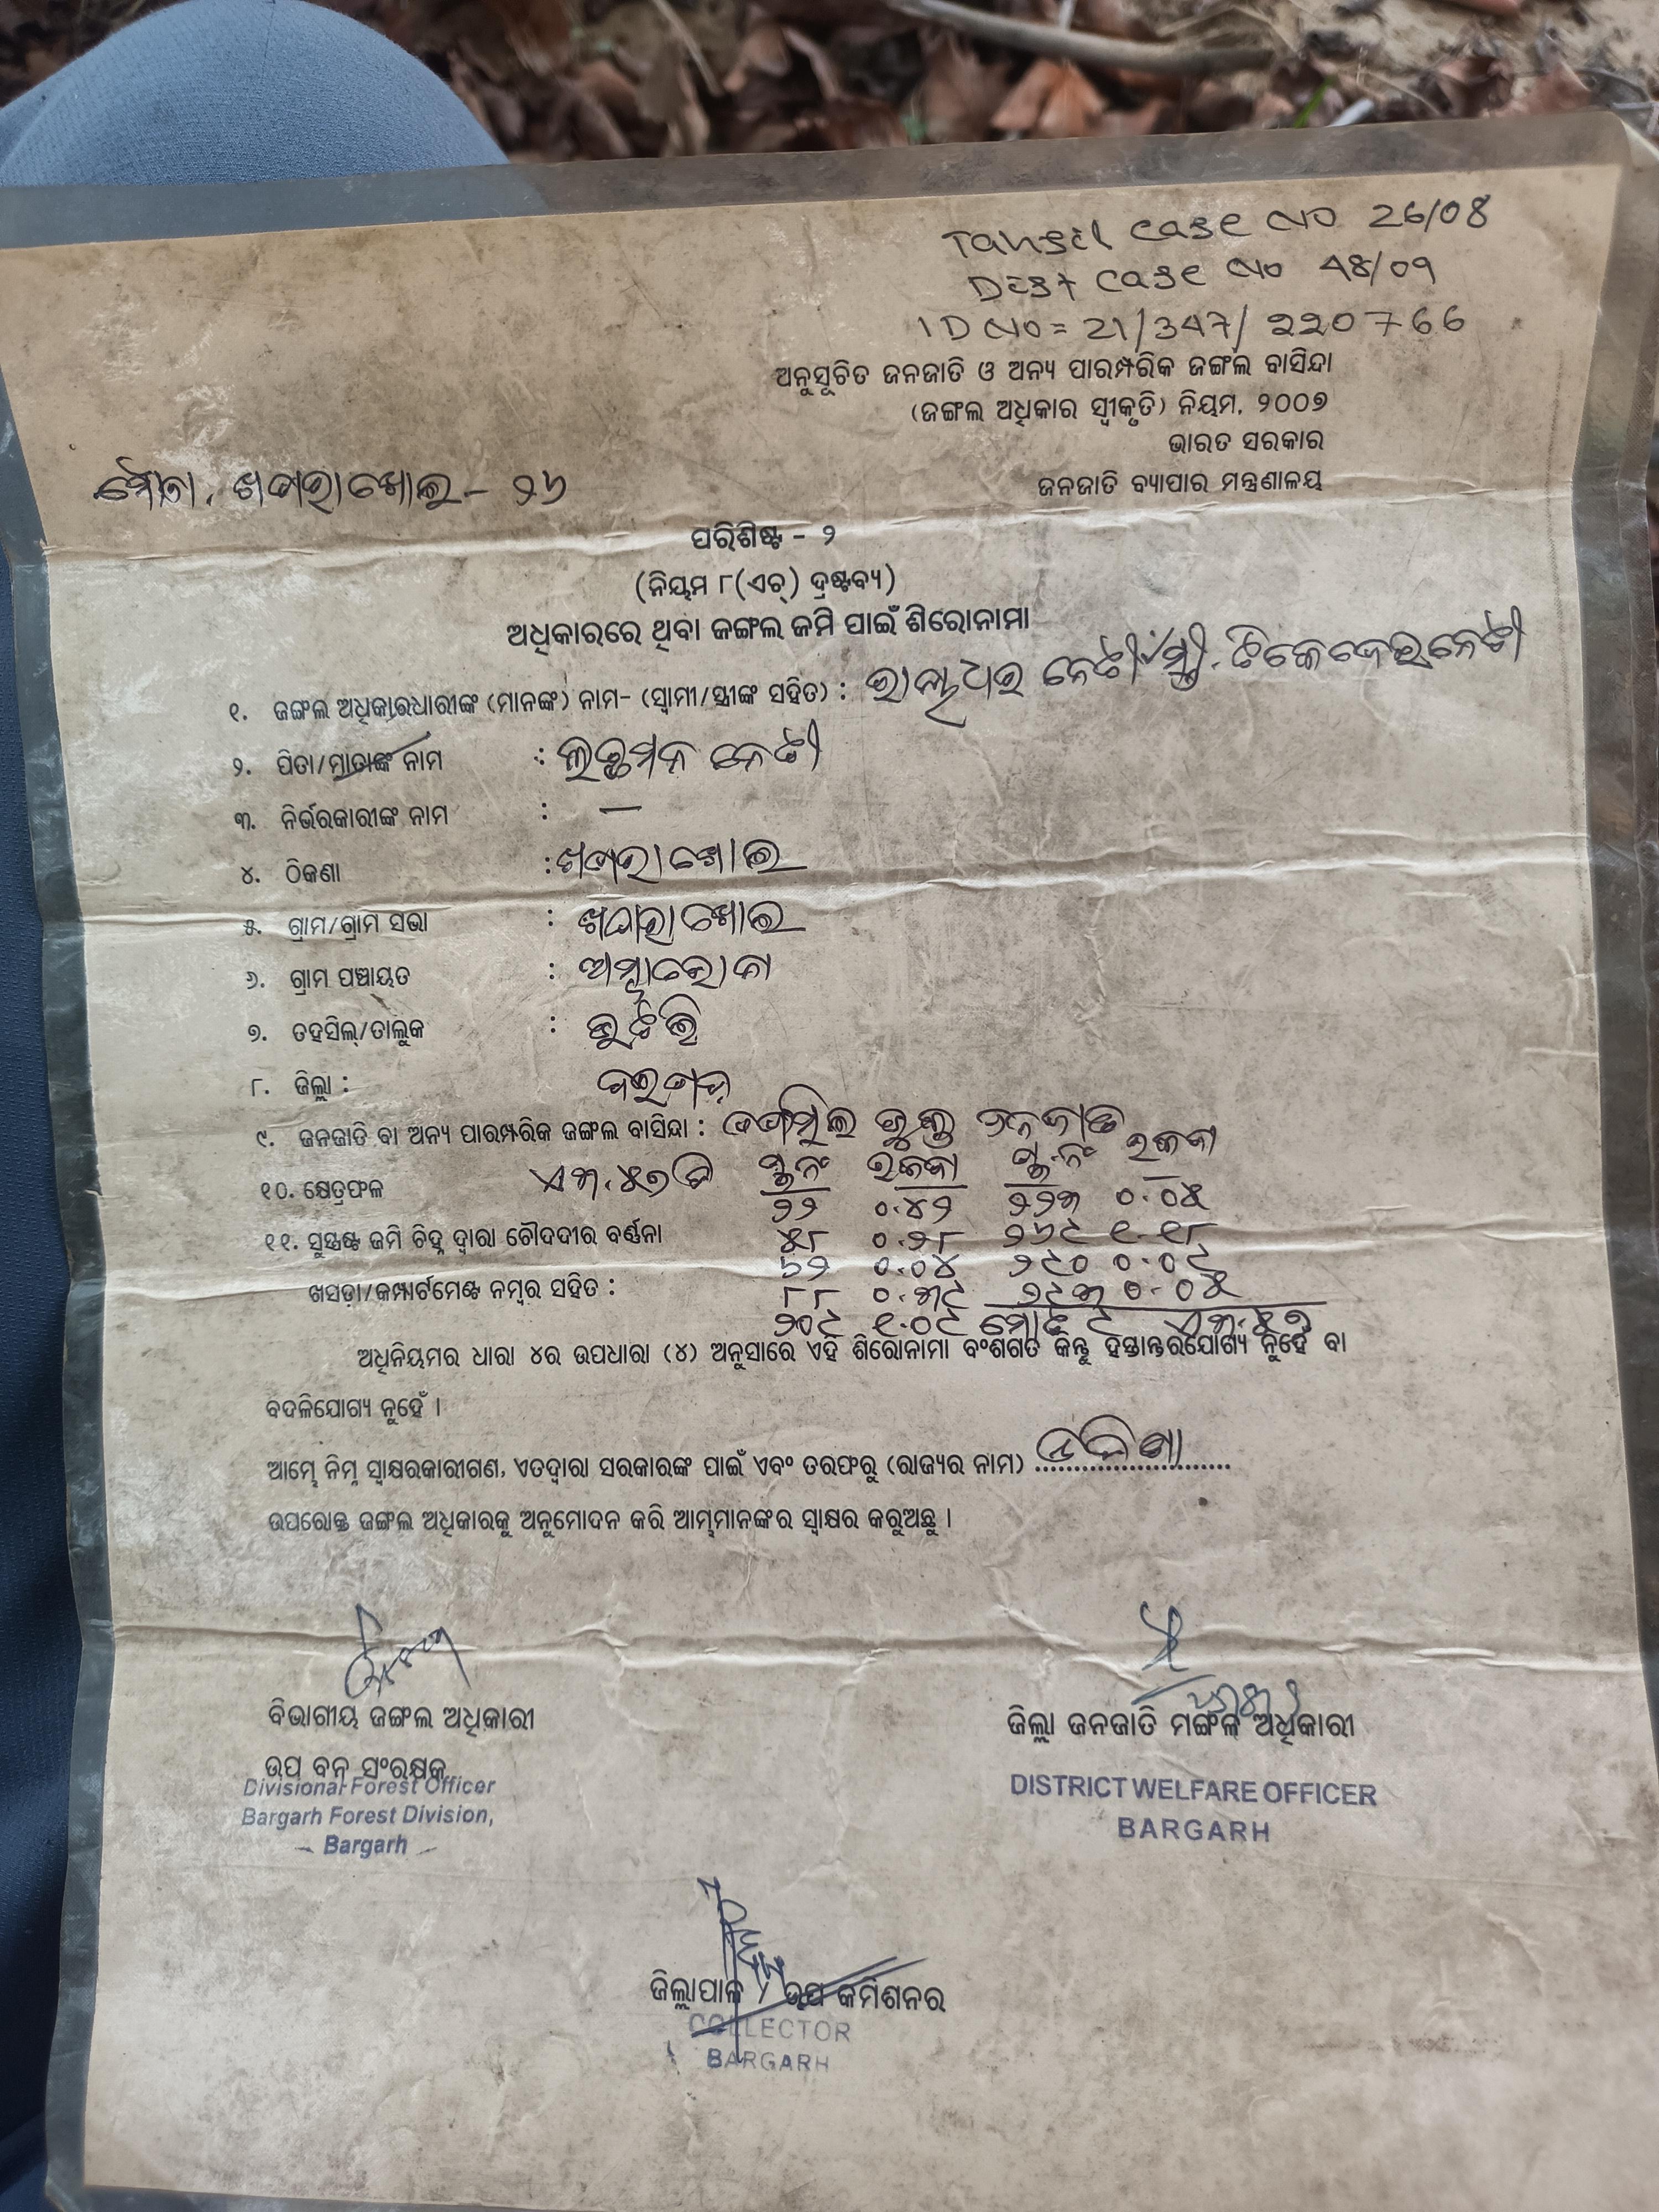 Tahsil Case No 26/08
Dist Case No 48/09
ID No = 21/347/220766
ଅନୁସୂଚିତ ଜନଜାତି ଓ ଅନ୍ୟ ପାରମ୍ପରିକ ଜଙ୍ଗଲ ବାସିନ୍ଦା
(ଜଙ୍ଗଲ ଅଧିକାର ସ୍ୱୀକୃତି) ନିୟମ, ୨୦୦୭
ଭାରତ ସରକାର
ଜନଜାତି ବ୍ୟାପାର ମନ୍ତ୍ରଣାଳୟ
ମୌଜା, ଖଜାରାଖୋଲ - ୨୬
ପରିଶିଷ୍ଟ - ୨
(ନିୟମ ୮(ଏଚ୍) ଦ୍ରଷ୍ଟବ୍ୟ)
ଅଧିକାରରେ ଥିବା ଜଙ୍ଗଲ ଜମି ପାଇଁ ଶିରୋନାମା
୧. ଜଙ୍ଗଲ ଅଧିକାରଧାରୀଙ୍କ (ମାନଙ୍କ) ନାମ- (ସ୍ୱାମୀ/ସ୍ତ୍ରୀଙ୍କ ସହିତ) : ନେଟୀ
୨. ପିତା/ମାତାଙ୍କ ନାମ : ଲଛମନ ନେଟୀ
୩. ନିର୍ଭରକାରୀଙ୍କ ନାମ : —
୪. ଠିକଣା :
୫. ଗ୍ରାମ/ଗ୍ରାମ ସଭା :
୬. ଗ୍ରାମ ପଞ୍ଚାୟତ :
୭. ତହସିଲ୍/ତାଲୁକ :
୮. ଜିଲ୍ଲା : ବରଗଡ଼
୯. ଜନଜାତି ବା ଅନ୍ୟ ପାରମ୍ପରିକ ଜଙ୍ଗଲ ବାସିନ୍ଦା : ତଫସିଲ ଭୁକ୍ତ ଜନଜାତି
୧୦. କ୍ଷେତ୍ରଫଳ ଏ୩.୫୭ ଡି ପ୍ଲଟନଂ ରକବା ପ୍ଲଟନଂ ରକବା
୨୨ ୦.୪୨ ୨୨୩ ୦.୦୫
୧୧. ସୁସ୍ପଷ୍ଟ ଜମି ଚିହ୍ନ ଦ୍ୱାରା ଚୌହଦୀର ବର୍ଣ୍ଣନା ୫୮ ୦.୨୮ ୨୬୯ ୧.୧୮
୬୨ ୦.୦୪ ୨୯୦ ୦.୦୯
ଖସଡ଼ା/କମ୍ପାର୍ଟମେଣ୍ଟ ନମ୍ବର ସହିତ : ୮୮ ୦.୩୯ ୨୯୩ ୦.୦୫
୨୦୯ ୧.୦୯ ମୋଟ ୯ ଏ୩.୫୭
ଅଧିନିୟମର ଧାରା ୪ର ଉପଧାରା (୪) ଅନୁସାରେ ଏହି ଶିରୋନାମା ବଂଶଗତ କିନ୍ତୁ ହସ୍ତାନ୍ତରଯୋଗ୍ୟ ନୁହେଁ ବା
ବଦଳିଯୋଗ୍ୟ ନୁହେଁ ।
ଆମ୍ଭେ ନିମ୍ନ ସ୍ୱାକ୍ଷରକାରୀଗଣ, ଏତଦ୍ୱାରା ସରକାରଙ୍କ ପାଇଁ ଏବଂ ତରଫରୁ (ରାଜ୍ୟର ନାମ) ଓଡିଶା
ଉପରୋକ୍ତ ଜଙ୍ଗଲ ଅଧିକାରକୁ ଅନୁମୋଦନ କରି ଆମ୍ଭମାନଙ୍କର ସ୍ୱାକ୍ଷର କରୁଅଛୁ ।
ବିଭାଗୀୟ ଜଙ୍ଗଲ ଅଧିକାରୀ
ଉପ ବନ ସଂରକ୍ଷକ
Divisional Forest Officer
Bargarh Forest Division,
Bargarh
ଜିଲ୍ଲା ଜନଜାତି ମଙ୍ଗଳ ଅଧିକାରୀ
DISTRICT WELFARE OFFICER
BARGARH
ଜିଲ୍ଲାପାଳ / ଉପ କମିଶନର
COLLECTOR
BARGARH